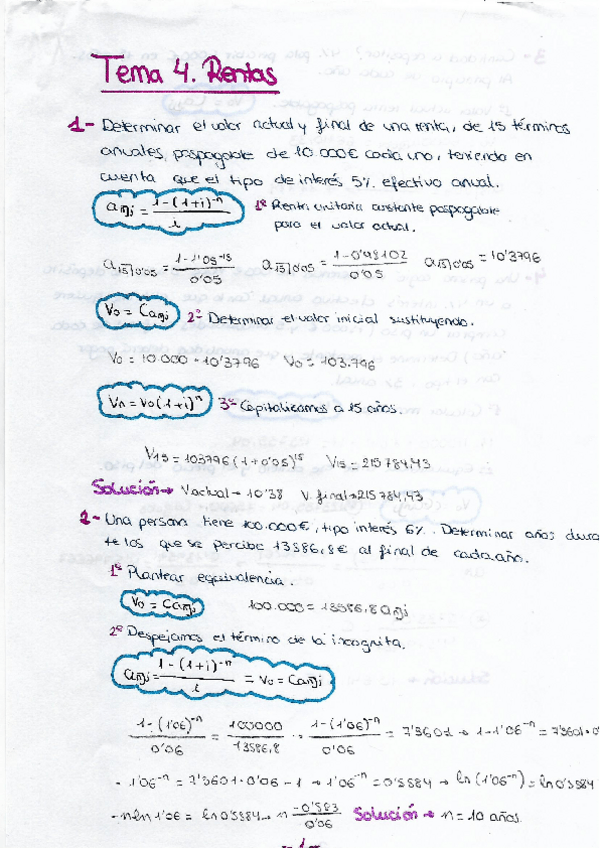 Tema 4. Rentas
1- Determinar el valor actual y final de una renta, de 15 términos
anuales, pospagable de 10.000€ cada uno, teniendo en
cuenta que el tipo de interés 5% efectivo anual.
an̅|i = 1-(1+i)^-n / i 1º Renta unitaria constante pospagable
para el valor actual.
a15̅|0'05 = 1-1'05^-15 / 0'05 a15̅|0'05 = 1-0'48102 / 0'05 a15̅|0'05 = 10'3796
V0 = Can̅|i 2º Determinar el valor inicial sustituyendo.
V0 = 10.000 · 10'3796 V0 = 103.796
Vn = V0(1+i)^n 3º Capitalizamos a 15 años.
V15 = 103796(1+0'05)^15 V15 = 215784,43
Solución→ Vactual→ 10'38 V.final→215784,43
2- Una persona tiene 100.000€, tipo interés 6%. Determinar años dura
te los que se percibe 13586,8€ al final de cada año.
1º Plantear equivalencia.
V0 = Can̅|i 100.000 = 13586,8 an̅|i
2º Despejamos el término de la incognita.
an̅|i = 1-(1+i)^-n / i = V0 = Can̅|i
1-(1'06)^-n / 0'06 = 100000 / 13586,8 · 1-(1'06)^-n / 0'06 = 7'3601 → 1-1'06^-n = 7'3601·0
- 1'06^-n = 7'3601·0'06 - 1 → 1'06^-n = 0'5584 → ln(1'06^-n) = ln0'5584
-nln 1'06 = ln0'5584→ n -0'583 / 0'06 Solución → n = 10 años.
- 1 -